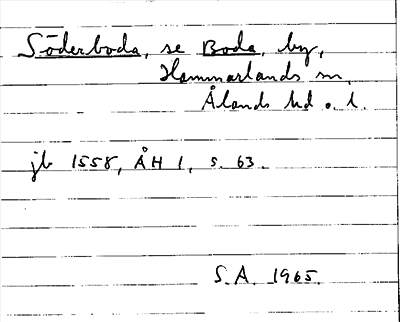 Söderboda, se Boda, by,
Hammarlands sn,
Ålands hd o. l.
jb 1558, ÅH 1, s. 63.
S.A. 1965.